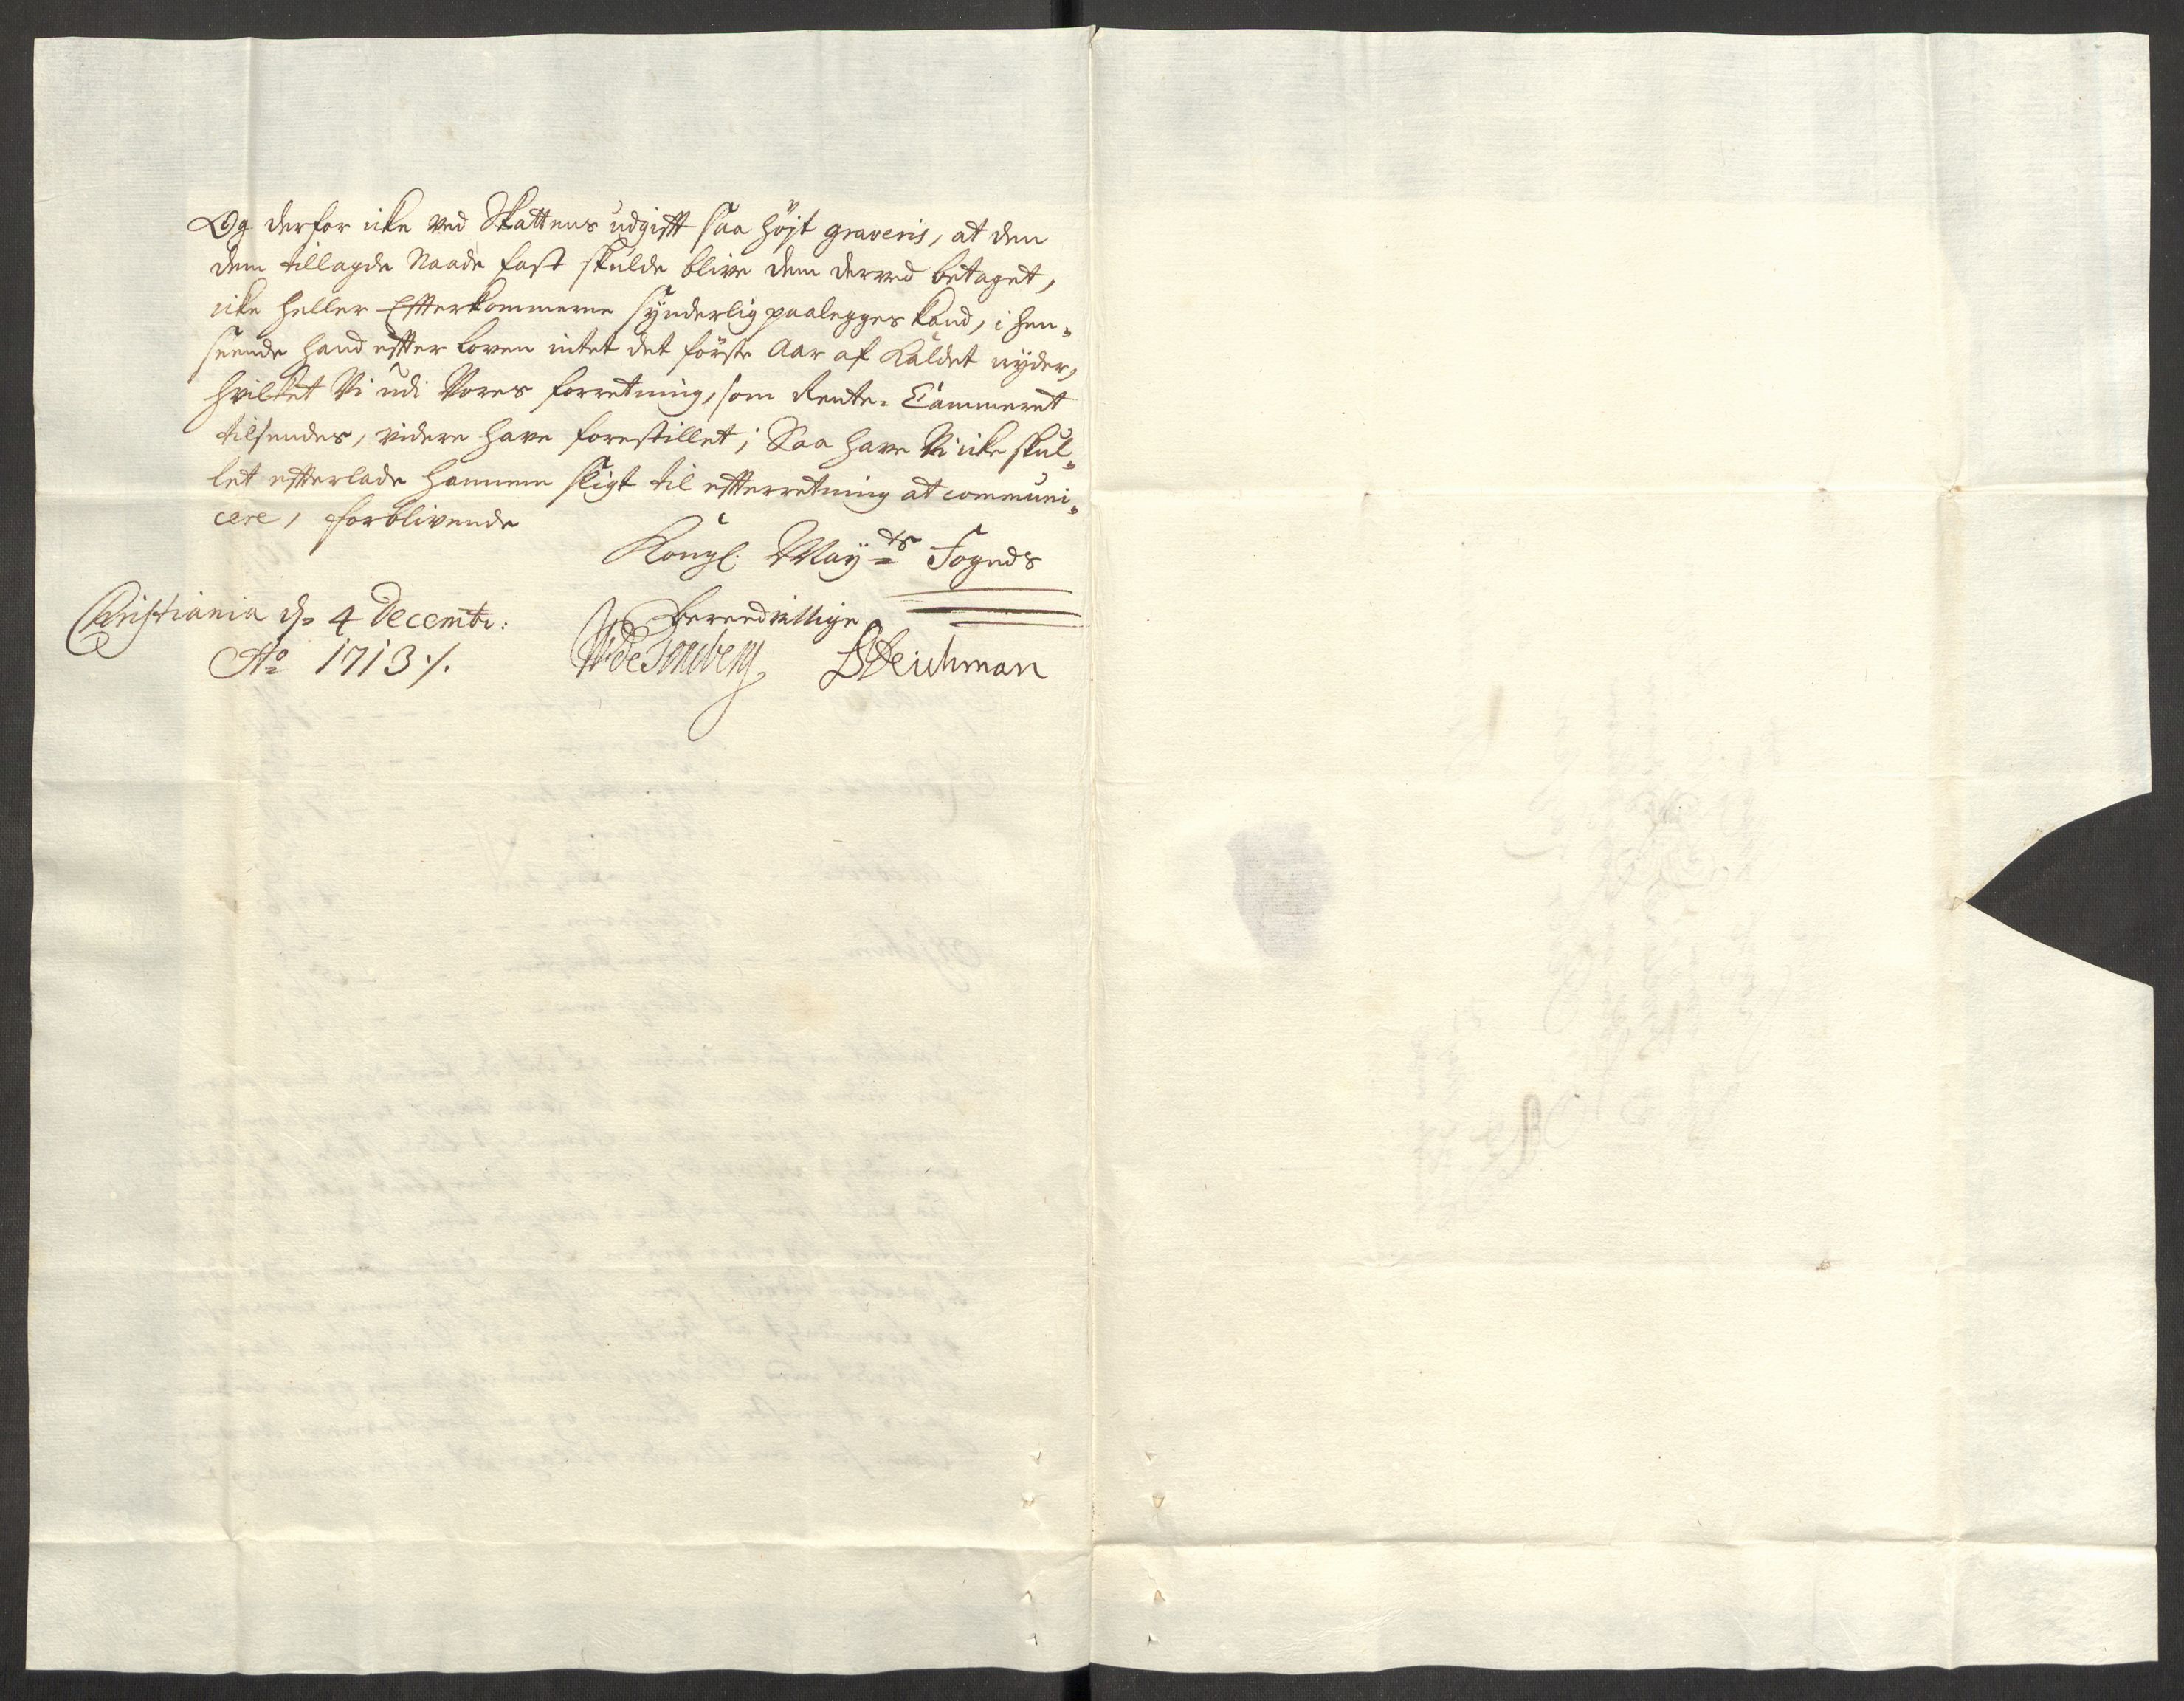 Og derfor icke ved Skattens udgifft saa höjt graveris, at den
dem tillagde Naade fast skulde blive dem derved betaget,
icke heller Effterkommerne synderlig paalegges kand, i hen-
seende hand effter loven intet det förste Aar af Kaldet nyder,
hvilket Vi udi Vores forretning, som Rente-Cammeret
tilsendes, videre have forestillet; Saa have Vi icke skul-
let efterlade hannem sligt til efterretning at communi-
cere, forblivende
Kongl. May:ts Fogeds
Christiania d. 4 Decembr:
beredvillige
Ao 1713 ./.
W de Tonsberg DDeichman